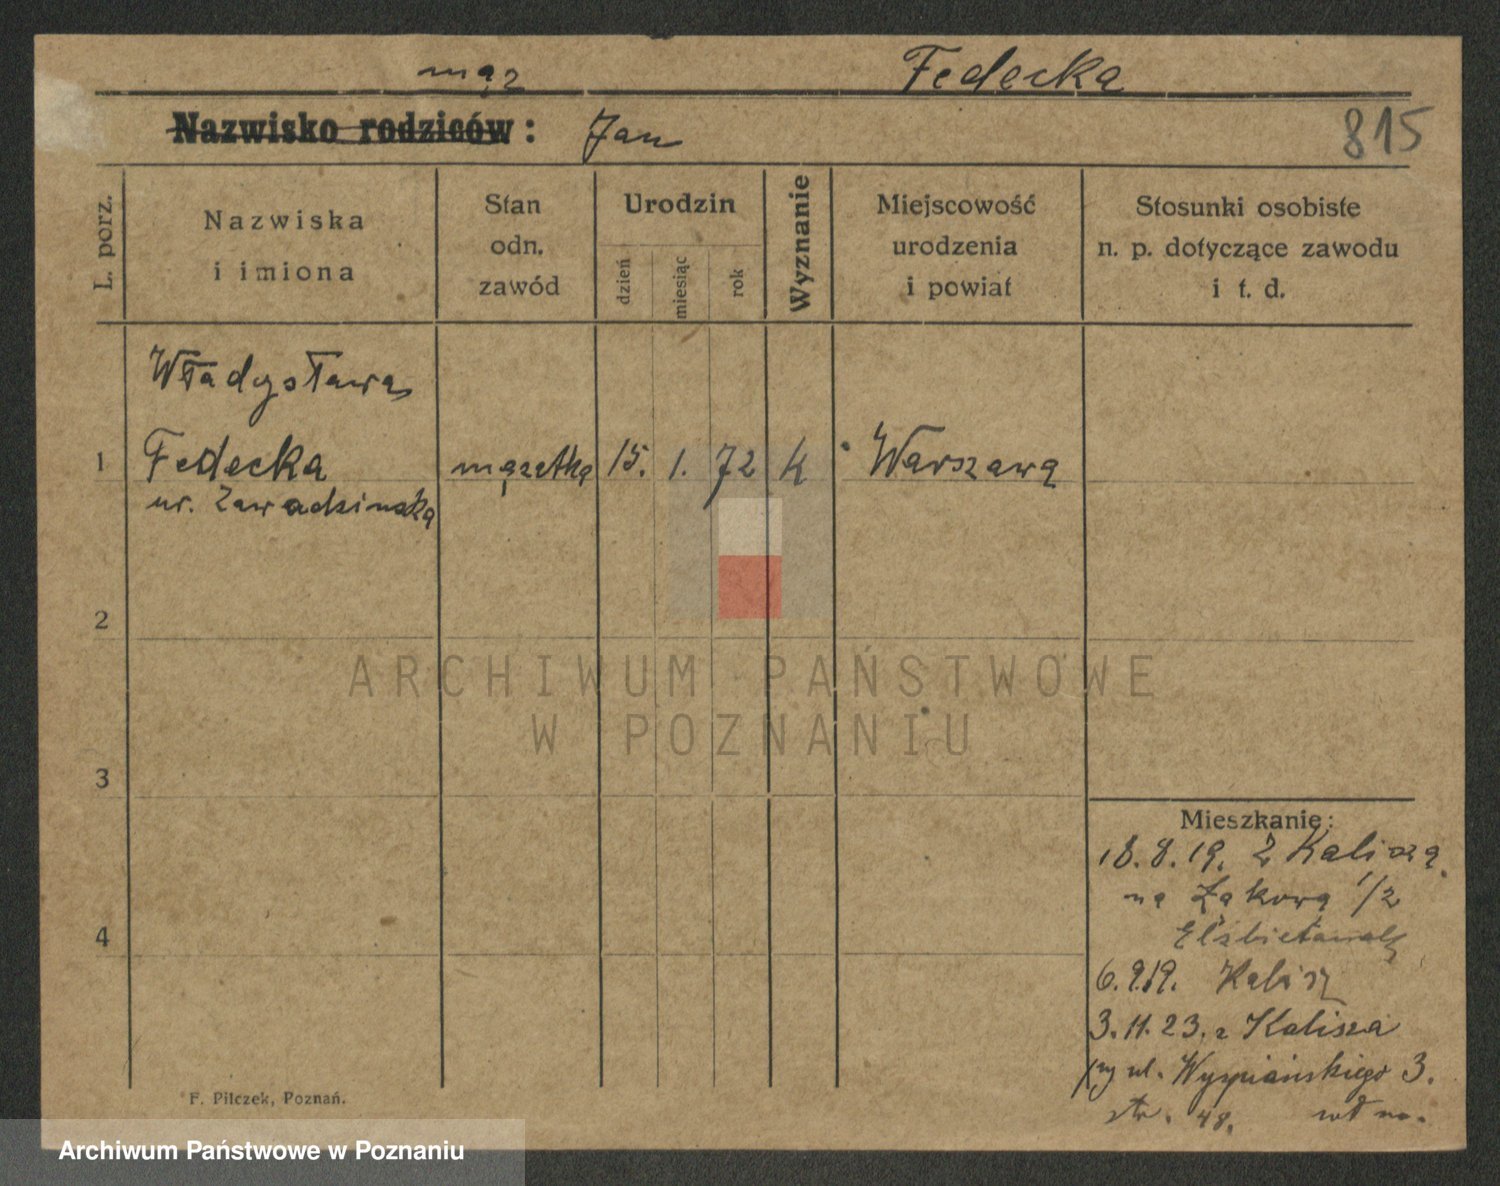 mąż Fedecka
Nazwisko rodziców: Jan 815
L. porz.
Nazwiska
i imiona
Stan
odn.
zawód
Urodzin
dzień
miesiąc
rok
Wyznanie
Miejscowość
urodzenia
i powiat
Stosunki osobiste
n. p. dotyczące zawodu
i t. d.
Władysława
1 Fedecka mężatka 15. 1. 72 K Warszawa
ur. Zawadzinska
2
ARCHIWUM PAŃSTWOWE
W POZNANIU
3
4
Mieszkanie:
18.8.19. z Kalisza
na Łąkowa 1/2
Elżbietanek
6.9.19. Kalisz
3.11.23. z Kalisza
ul. Wyspiańskiego 3.
str. 48.
F. Pilczek, Poznań.
Archiwum Państwowe w Poznaniu